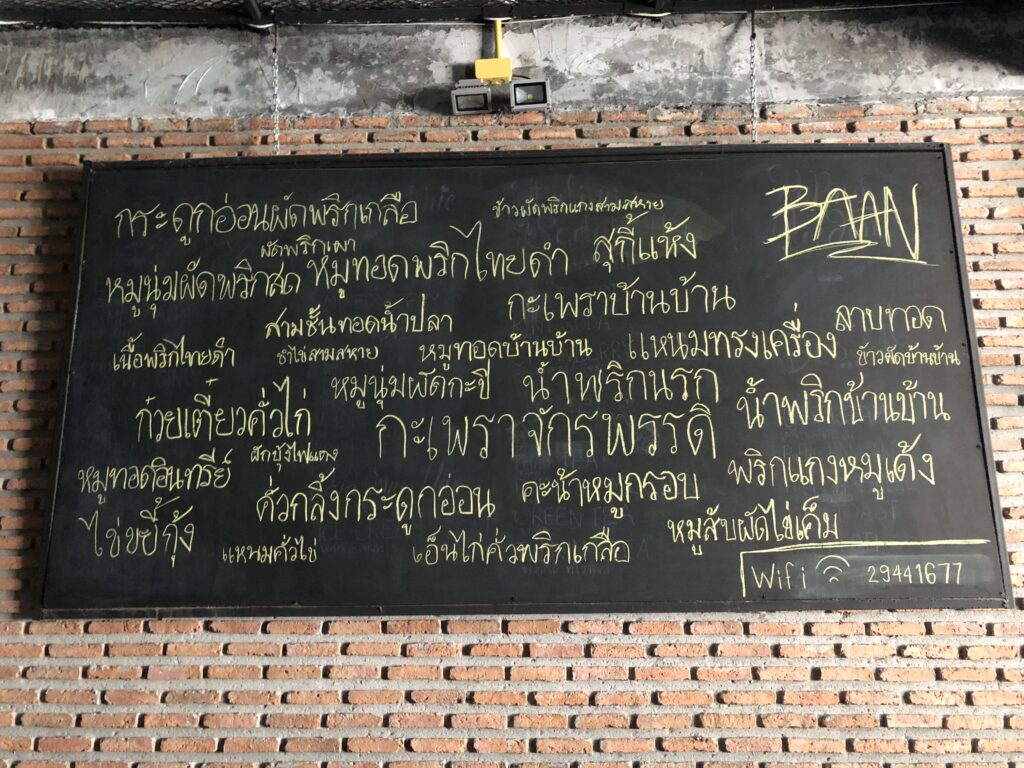 กระดูกอ่อนผัดพริกเกลือ
ข้าวผัดพริกแกงสามสหาย
BAAN
ผัดพริกเผา
หมูนุ่มผัดพริกสด
หมูทอดพริกไทยดำ
สุกี้แห้ง
กะเพราบ้านบ้าน
สามชั้นทอดน้ำปลา
ลาบทอด
เนื้อพริกไทยดำ
ยำไข่สามสหาย
หมูทอดบ้านบ้าน
แหนมทรงเครื่อง
ข้าวผัดบ้านบ้าน
หมูนุ่มผัดกะปิ
น้ำพริกนรก
น้ำพริกบ้านบ้าน
ก๋วยเตี๋ยวคั่วไก่
กะเพราจักรพรรดิ
ผักบุ้งไฟแดง
หมูทอดอินทรีย์
พริกแกงหมูเด้ง
คั่วกลิ้งกระดูกอ่อน
คะน้าหมูกรอบ
ไข่ขยี้กุ้ง
แหนมคั่วไข่
เอ็นไก่คั่วพริกเกลือ
หมูสับผัดไข่เค็ม
Wifi 29441677